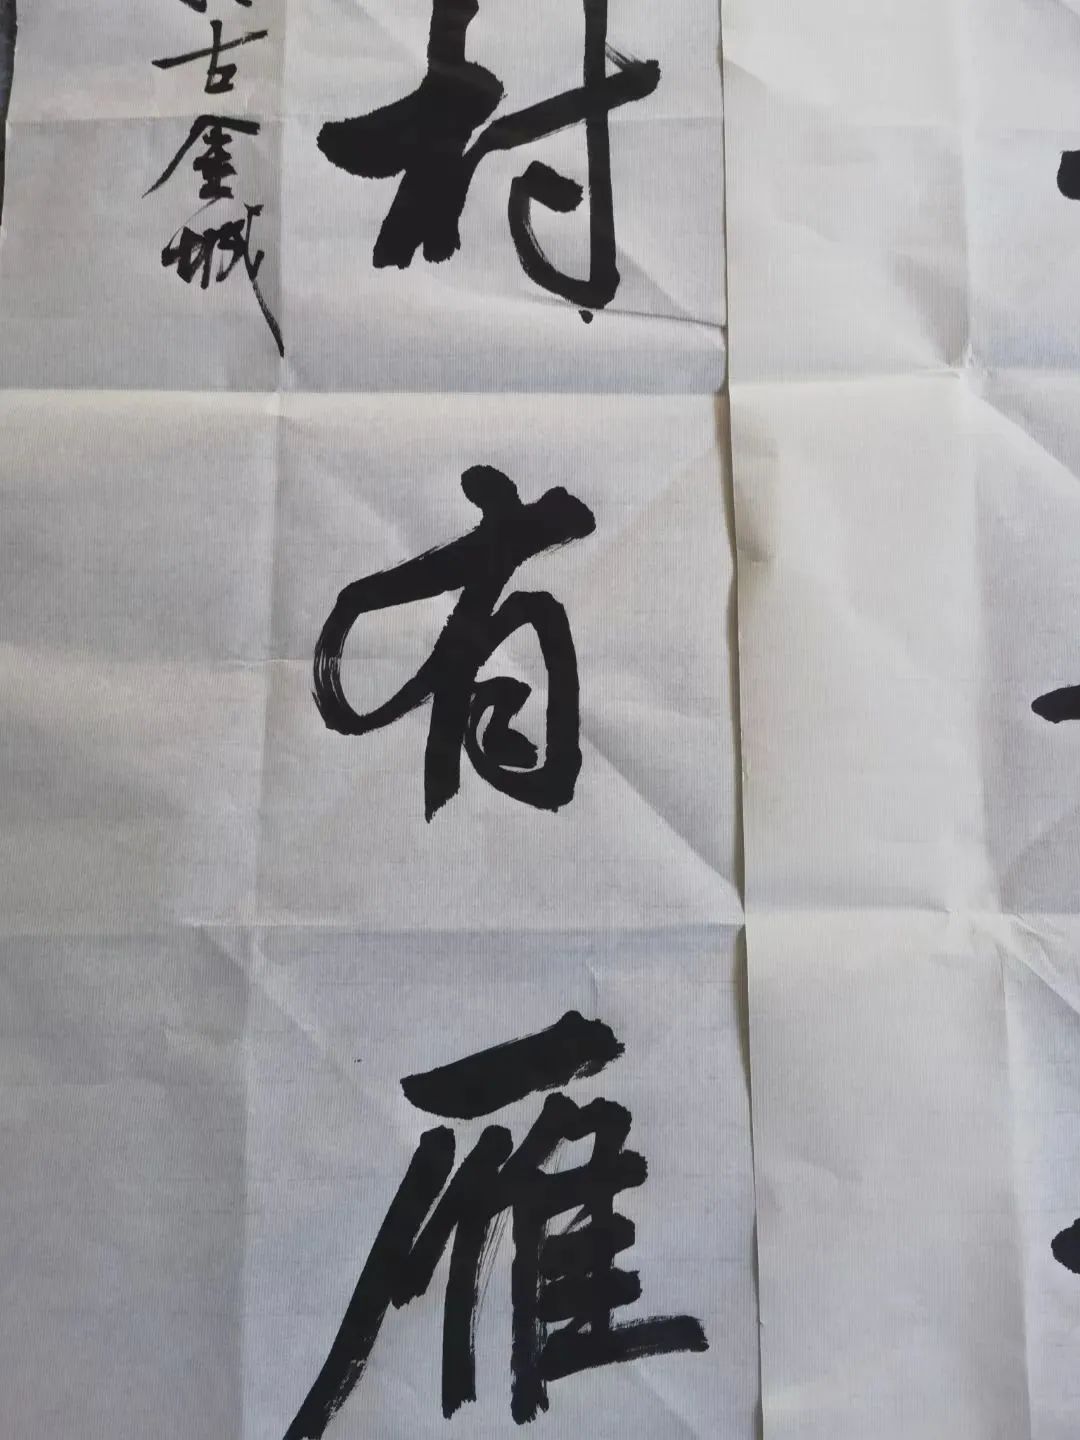 村有雁
古金城